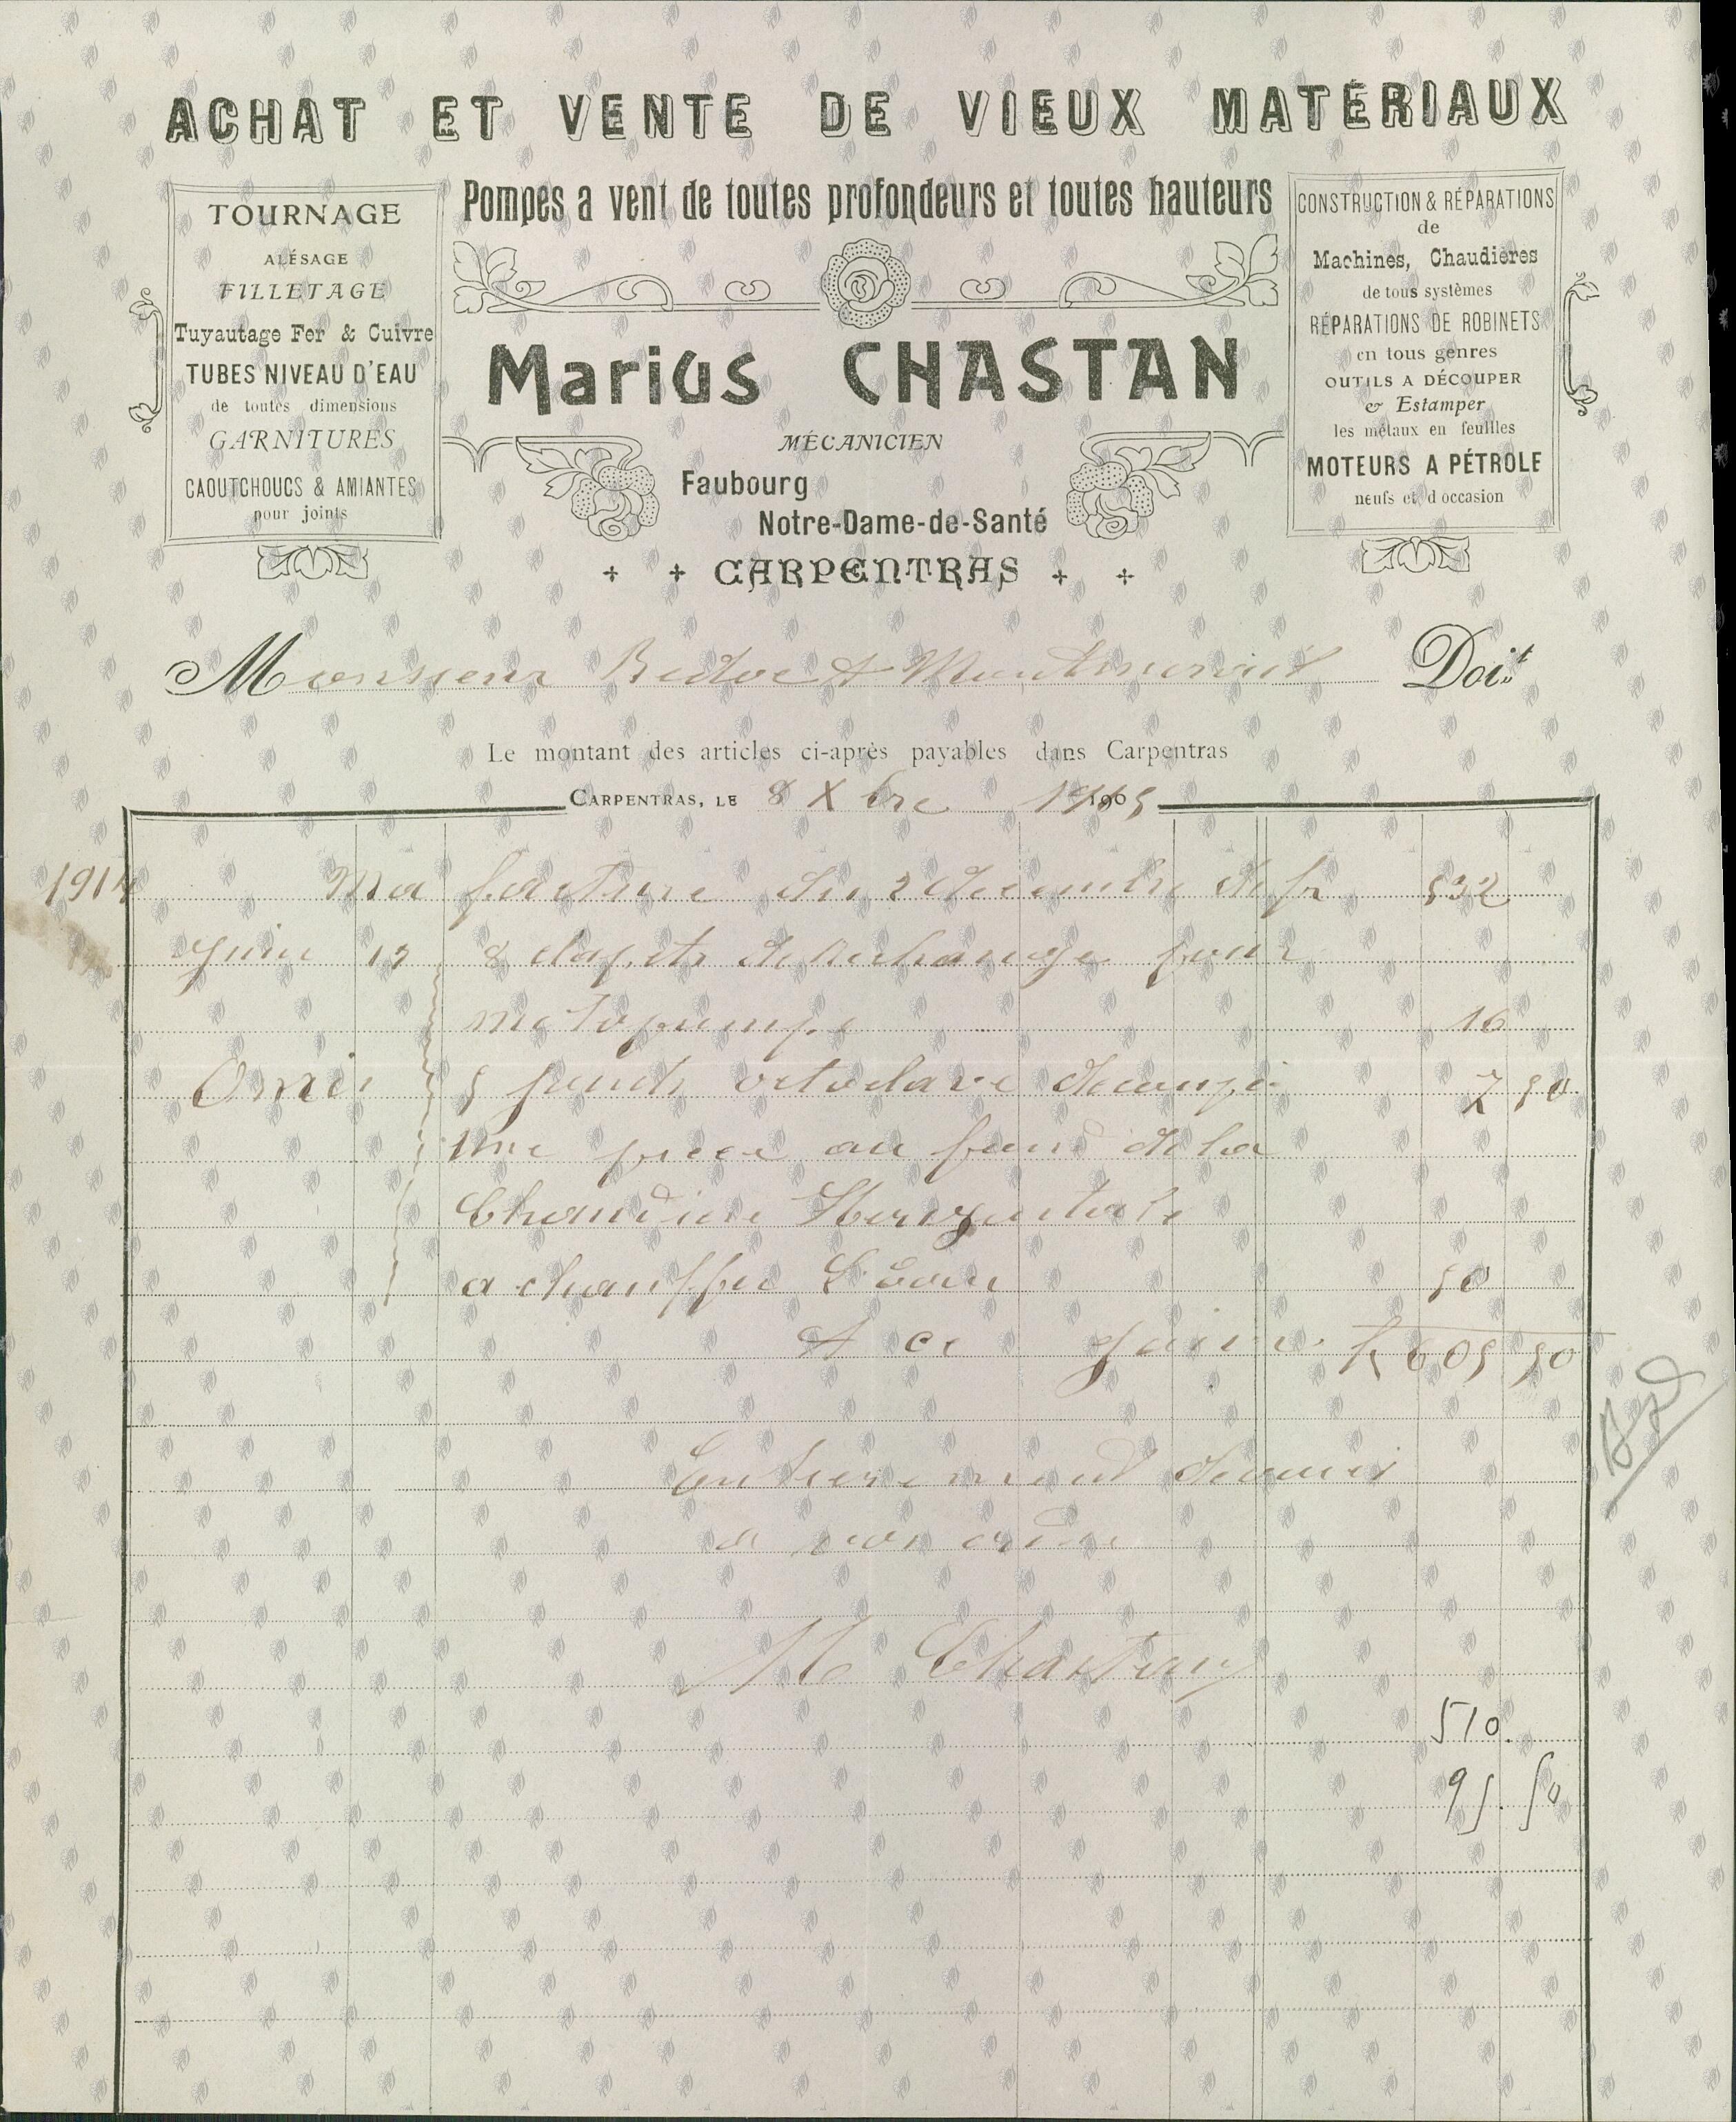 ACHAT ET VENTE DE VIEUX MATÉRIAUX
Pompes a vent de toutes profondeurs et toutes hauteurs
TOURNAGE
ALÉSAGE
FILLETAGE
Tuyautage Fer & Cuivre
TUBES NIVEAU D'EAU
de toutes dimensions
GARNITURES
CAOUTCHOUCS & AMIANTES
pour joints
Marius CHASTAN
MÉCANICIEN
Faubourg
Notre-Dame-de-Santé
CARPENTRAS
CONSTRUCTION & RÉPARATIONS
de
Machines, Chaudières
de tous systèmes
RÉPARATIONS DE ROBINETS
en tous genres
OUTILS A DÉCOUPER
& Estamper
les métaux en feuilles
MOTEURS A PÉTROLE
neufs et d'occasion
Monsieur Doit
Le montant des articles ci-après payables dans Carpentras
CARPENTRAS, LE 8 Xbre 1915
1914 Ma facture du 2 decembre de fr 532
Juin 8 clapets de rechange pour
motopompe 16
Omis 5 fonds octoclave 7 50
une piece au fond de la
Chaudiere Horizontale
a chauffer L'eau 50
A ce jour fr 605 50
a mon ordre
M Chastan
510
95.50